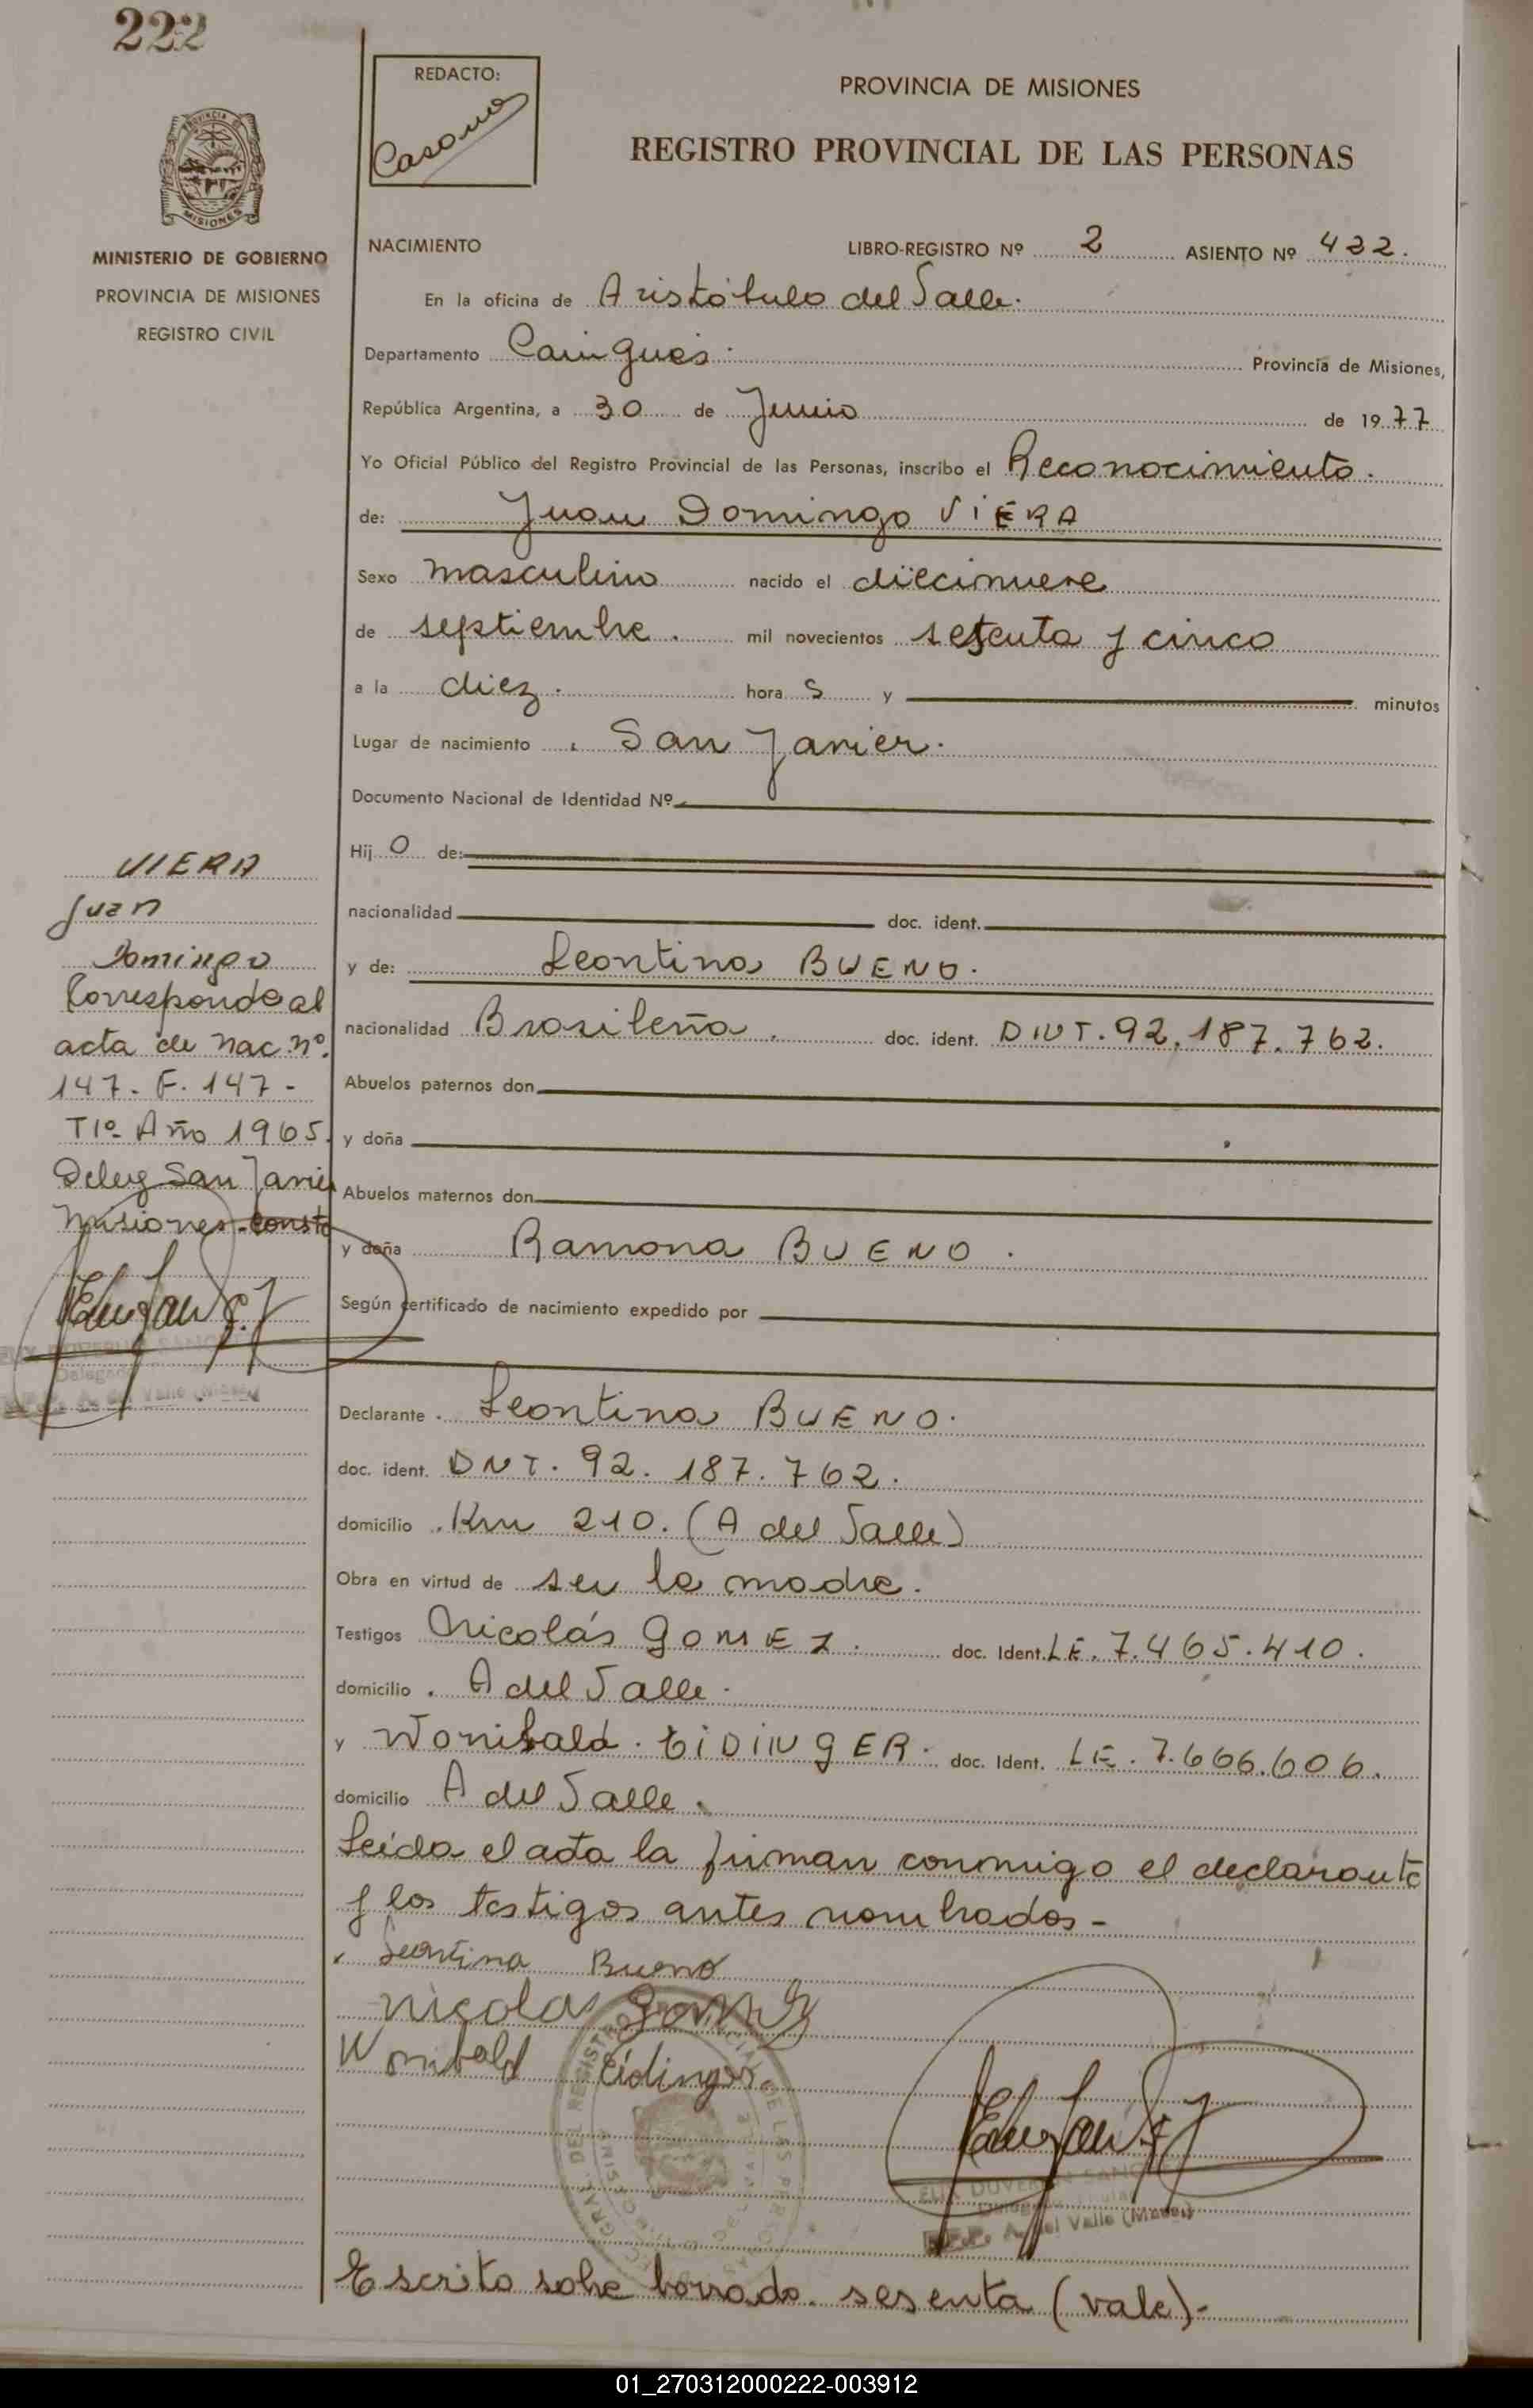 222
REDACTO:
Casano
PROVINCIA DE MISIONES
REGISTRO PROVINCIAL DE LAS PERSONAS
PROVINCIA DE
MISIONES
MINISTERIO DE GOBIERNO
PROVINCIA DE MISIONES
REGISTRO CIVIL
NACIMIENTO LIBRO-REGISTRO Nº 2 ASIENTO Nº 422.
En la oficina de Aristóbulo del Valle.
Departamento Cainguás. Provincia de Misiones,
República Argentina, a 30 de Junio de 1977
Yo Oficial Público del Registro Provincial de las Personas, inscribo el Reconocimiento.
de: Juan Domingo VIERA
Sexo masculino nacido el diecinueve
de septiembre. mil novecientos sesenta y cinco
a la diez. hora s y minutos
Lugar de nacimiento San Javier.
Documento Nacional de Identidad Nº
Hij o de:
nacionalidad doc. ident.
y de: Leontina BUENO.
nacionalidad Brasileña. doc. ident. DNT. 92.187.762.
Abuelos paternos don
y doña
Abuelos maternos don
y doña Ramona BUENO.
Según certificado de nacimiento expedido por
VIERA
Juan
Domingo
Corresponde al
acta de nac. nº.
147. F. 147 -
Tº 1º Año 1965.
Deleg San Javier
Misiones. Conste
Delegado
A. del Valle (Mnes)
Declarante Leontina BUENO.
doc. ident. DNT. 92. 187. 762.
domicilio Km 210. (A del Valle)
Obra en virtud de ser la madre.
Testigos Nicolás GOMEZ. doc. Ident. LE. 7.465.410.
domicilio A del Valle.
y Wonibald. EIDINGER. doc. Ident. LE. 7.666.606.
domicilio A del Valle.
Leída el acta la firman conmigo el declarante
y los testigos antes nombrados -
Leontina Bueno
nicolas Gomez
Wonibald Eidinger.
A. del Valle (Mnes)
Escrito sobre borrado. sesenta (vale).-
01_270312000222-003912